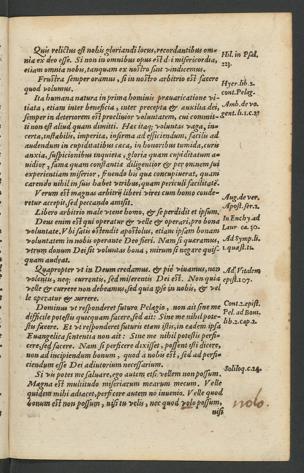 Quis relictus est nobis gloriandi locus, recordantibus om-
nia ex deo esse. Si non in omnibus opus est d i misericordia,
etiam omnia nobis, tanquam ex nostro sunt vindicemus.
Hil. in Psal.
223.
Frustra semper oramus, si in nostro arbitrio est facere
quod volumus.
Hyer. lib. 2.
cont. Pelag.
Ita humana natura in prima hominis prævaricatione vi-
tiata, etiam inter beneficia, inter precepta & auxilia dei,
semper in deteriorem est proclivior voluntatem, cui committi
non est aliud quam dimitti. Hæc itaq; voluntas vaga, in-
certa, instabilis, imperita, infirma ad efficiendum, facilis ad
audendum in cupiditatibus cæca, in honoribus tumida, curis
anxia, suspicionibus inquieta, gloriæ quam cupiditatum a-
vidior, fama quam constantia diligentior & per omnem sui
experientiam miserior, fruendo his qua concupierat, quam
carendo nihil in suis habet viribus, quam periculi facilitatē.
Amb. de vo.
gent. li. 1. c. 27
Verum est magnas arbitrij liberi vires cum homo conde-
retur accepit, sed peccando amisit.
Aug. de ver.
Apost. ser. 2.
Libero arbitrio male utens homo, & se perdidit et ipsum.
In Enchy. ad
Laur. ca. 30.
Deus enim est qui operatur & velle & operari, pro bona
voluntate. Ubi satis ostendit apostolus, etiam ipsam bonam
voluntatem in nobis operante Deo fieri. Nam si quæramus,
utrum donum Dei sit voluntas bona, mirum si negare quis-
quam audeat.
Ad Sympli.
1. quæst. 12.
Quapropter ut in Deum credamus, & piè vivamus, non
volentis, neq; currentis, sed miserentis Dei est. Non quia
velle & currere non debeamus, sed quia ipse in nobis, & vel
le operatur & currere.
Ad Vitalem
epist. 107.
Dominus ut responderet futuro Pelagio, non ait sine me
difficile potestis quicquam facere, sed ait: Sine me nihil pote-
stis facere. Et ut responderet futuris etiam istis, in eadem ipsa
Evangelica sententia non ait: Sine me nihil potestis perfi-
cere, sed facere. Nam si perficere dixisset, possent isti dicere,
non ad incipiendum bonum, quod à nobis est, sed ad perfi-
ciendum esse Dei adiutorium necessarium.
Cont. 2. epist.
Pel. ad Bonf.
lib. 2. cap. 2.
Si vis potes me salvare, ego autem etsi vellem non possum.
Magna est multitudo miseriarum mearum mecum. Velle
quidem mihi adiacet, perficere autem no invenio. Velle quod
bonum est non possum, nisi tu velis, nec quod volo possum,
Soliloq. c. 24.
nolo.
nisi